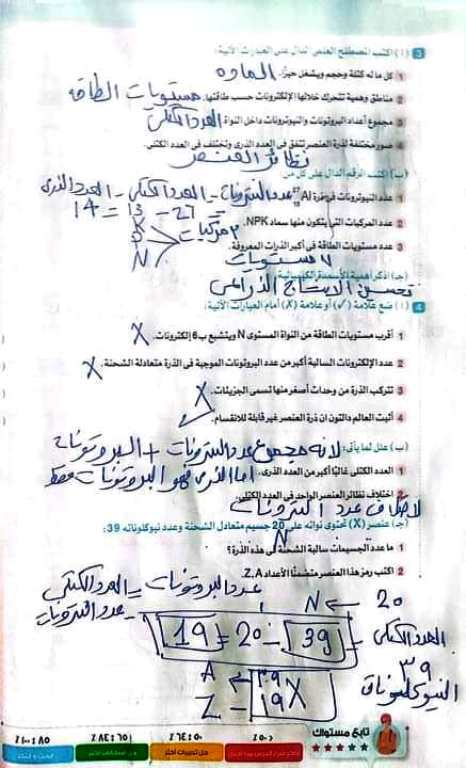 3 (أ) اكتب المصطلح العلمي الدال على العبارات الآتية:
1 كل ما له كتلة وحجم ويشغل حيزًا. الماده
2 مناطق وهمية تتحرك خلالها الإلكترونات حسب طاقتها. مستويات الطاقه
3 مجموع أعداد البروتونات والنيوترونات داخل النواة العدد الكتلى
4 صور مختلفة لذرة العنصر تتفق في العدد الذرى وتختلف في العدد الكتلى.
نظائر العنصر
(ب) اكتب الرقم الدال على كل من
1 عدد النيوترونات في ذرة Al 27 13 عدد النيترونات = العدد الكتلى - العدد الذرى
14 = 13 - 27
2 عدد المركبات التي يتكون منها سماد NPK. ٣ مركبات
N
3 عدد مستويات الطاقة في أكبر الذرات المعروفة.
٧ مستويات
(جـ) اذكر أهمية الأسمدة الكيميائية.
تحسين الانتاج الزراعى
4 (أ) ضع علامة (✓) أو علامة (X) أمام العبارات الآتية:
1 أقرب مستويات الطاقة من النواة المستوى N ويتشبع بـ 6 إلكترونات. X
2 عدد الإلكترونات السالبة أكبر من عدد البروتونات الموجبة في الذرة متعادلة الشحنة. X
3 تتركب الذرة من وحدات أصغر منها تسمى الجزيئات. X
4 أثبت العالم دالتون أن ذرة العنصر غير قابلة للانقسام. ✓
(ب) علل لما يأتى: لانه مجموع عدد النيترونات + البروتونات
1 العدد الكتلى غالبًا أكبر من العدد الذرى. اما الذرى فهو البروتونات فقط
2 اختلاف نظائر العنصر الواحد في العدد الكتلى.
لاختلاف عدد النترونات
(جـ) عنصر (X) تحتوى نواته على 20 جسيم متعادل الشحنة وعدد نيوكلوناته 39:
N
1 ما عدد الجسيمات سالبة الشحنة في هذه الذرة؟
2 اكتب رمز هذا العنصر متضمنًا الأعداد Z, A.
عدد البروتونات = العدد الكتلى - عدد النترونات
N ← 20
19 = 20 - 39
العدد الكتلى
٣٩
النيوكلونات
A ← 39
Z - 19 X
تابع مستواك